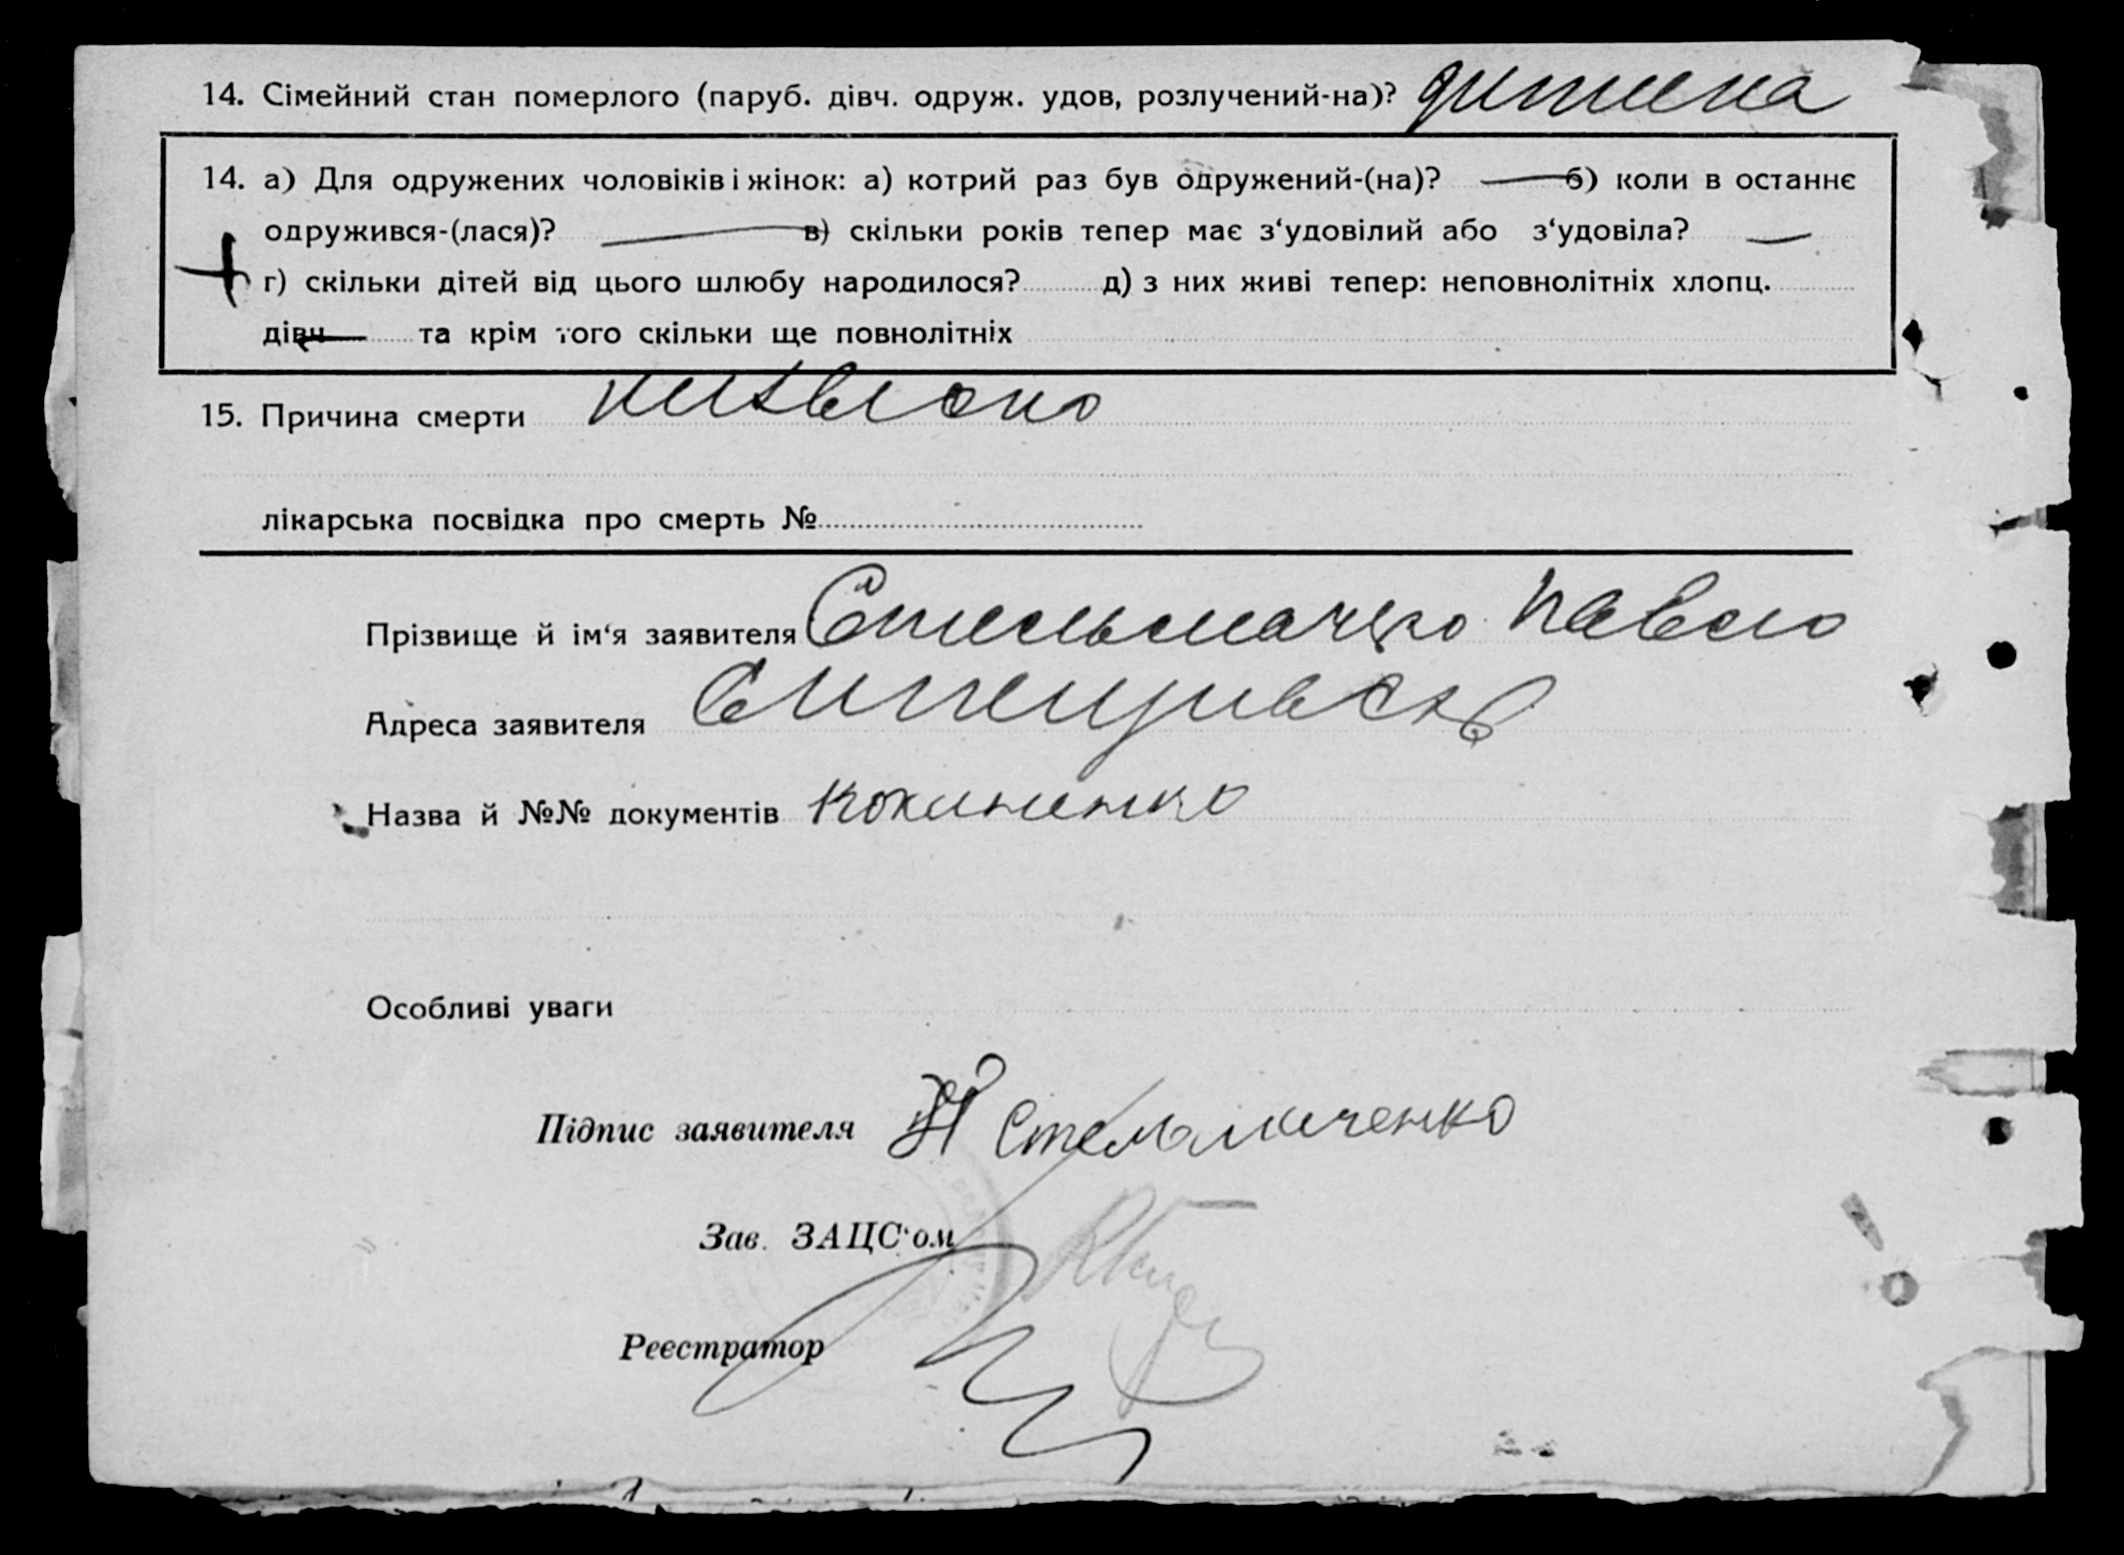 14. Сімейний стан померлого (паруб. дівч. одруж. удов, розлучений-на)? дитина
14. а) Для одружених чоловіків і жінок: а) котрий раз був одружений-(на)? — б) коли в останнє
одружився-(лася)? — в) скільки років тепер має з‘удовілий або з‘удовіла? —
г) скільки дітей від цього шлюбу народилося? д) з них живі тепер: неповнолітніх хлопц.
дівч — та крім того скільки ще повнолітніх
15. Причина смерти
лікарська посвідка про смерть №
Прізвище й ім‘я заявителя Павло
Адреса заявителя
Назва й №№ документів
Особливі уваги
Підпис заявителя Стельмаченко
Зав. ЗАЦС‘ом
Реєстратор